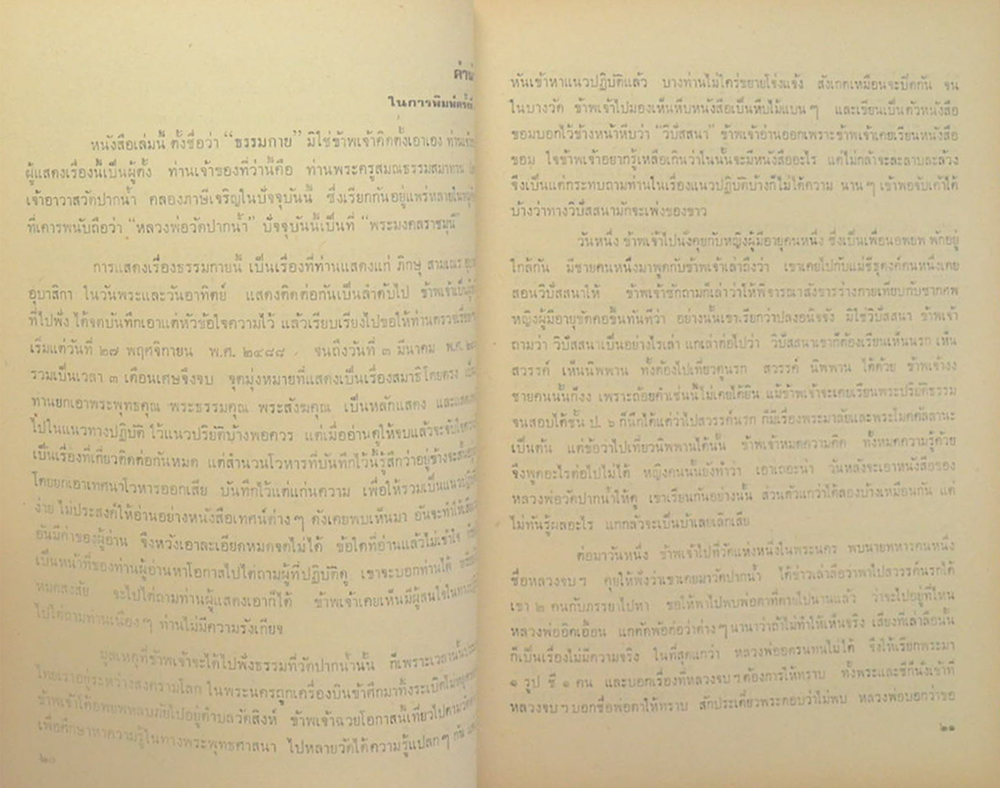 คำนำ
ในการพิมพ์ครั้งที่
หนังสือเล่มนี้ ตั้งชื่อว่า “ธรรมกาย” มิใช่ข้าพเจ้าคิดตั้งเอาเอง ท่าน
ผู้แสดงเรื่องนี้เป็นผู้ตั้ง ท่านเจ้าของที่ว่านี้คือ ท่านพระครูสมณธรรมสมาทาน
เจ้าอาวาสวัดปากน้ำ คลองภาษีเจริญในปัจจุบันนี้ ซึ่งเรียกกันอยู่แพร่หลายใน
ที่เคารพนับถือว่า “หลวงพ่อวัดปากน้ำ” ปัจจุบันนี้เป็นที่ “พระมงคลราชมุนี”
การแสดงเรื่องธรรมกายนี้ เป็นเรื่องที่ท่านแสดงแก่ ภิกษุ สามเณร
อุบาสิกา ในวันพระและวันอาทิตย์ แสดงติดต่อกันเป็นลำดับไป ข้าพเจ้าเป็นผู้
ที่ไปฟัง ได้จดบันทึกเอาแต่หัวข้อใจความไว้ แล้วเรียบเรียงไปขอให้ท่านตรวจ
เริ่มแต่วันที่ ๒๗ พฤศจิกายน พ.ศ. ๒๔๘๘ จนถึงวันที่ ๓ มีนาคม พ.ศ.
รวมเป็นเวลา ๓ เดือนเศษจึงจบ จุดมุ่งหมายที่แสดงเป็นเรื่องสมาธิโดยตรง
ท่านยกเอาพระพุทธคุณ พระธรรมคุณ พระสังฆคุณ เป็นหลักแสดง และแสดง
ไปในแนวทางปฏิบัติ ไว้แนวปริยัติบ้างพอควร แต่เมื่ออ่านดูให้จบแล้วจะจับใจความ
เป็นเรื่องที่เกี่ยวติดต่อกันหมด แต่สำนวนโวหารที่บันทึกไว้นี้รู้สึกว่าอยู่ข้างจะสั้น
โดยยกเอาเทศนาโวหารออกเสีย บันทึกไว้แต่แก่นความ เพื่อให้รวมเป็นแนวปฏิบัติ
ง่าย ไม่ประสงค์ให้อ่านอย่างหนังสือเทศน์ต่างๆ ดังเคยพบเห็นมา อันจะทำให้
อันมีค่าของผู้อ่าน จึงหวังเอาละเอียดหมดจดไม่ได้ ข้อใดที่อ่านแล้วไม่เข้าใจ
เป็นหน้าที่ของท่านผู้อ่านหาโอกาสไปไต่ถามผู้ที่ปฏิบัติดู เขาจะบอกท่านได้
หมดสงสัย จะไปไต่ถามท่านผู้แสดงเอาก็ได้ ข้าพเจ้าเคยเห็นมีผู้สนใจในทาง
ไปไต่ถามท่านเนืองๆ ท่านไม่มีความรังเกียจ
มูลเหตุที่ข้าพเจ้าจะได้ไปฟังธรรมที่วัดปากน้ำนั้น ก็เพราะเวลานั้น
ไทยเราอยู่ระหว่างสงครามโลก ในพระนครถูกเครื่องบินข้าศึกมาทิ้งระเบิด
ข้าพเจ้าได้อพยพหลบภัยไปอยู่ตำบลวัดสิงห์ ข้าพเจ้าฉวยโอกาสนี้เที่ยวไปตามวัด
เพื่อศึกษาหาความรู้ในทางพระพุทธศาสนา ไปหลายวัดได้ความรู้แปลกๆ กัน
๒๐
หันเข้าหาแนวปฏิบัติแล้ว บางท่านไม่ใคร่ขยายโจ่งแจ้ง สังเกตเหมือนจะปิดกัน จน
ในบางวัด ข้าพเจ้าไปมองเห็นหีบหนังสือเป็นหีบไม้แบนๆ และเขียนเป็นตัวหนังสือ
ขอมบอกไว้ข้างหน้าหีบว่า “วิปัสสนา” ข้าพเจ้าอ่านออกเพราะข้าพเจ้าเคยเรียนหนังสือ
ขอม ใจข้าพเจ้าอยากรู้เหลือเกินว่าในนั้นจะมีหนังสืออะไร แต่ไม่กล้าจะละลาบละล้วง
จึงเป็นแต่กระทบถามท่านในเรื่องแนวปฏิบัติบ้างก็ไม่ได้ความ นานๆ เข้าพอจับเค้าได้
บ้างว่าทางวิปัสสนามักจะเพ่งของขาว
วันหนึ่ง ข้าพเจ้าไปนั่งคุยกับหญิงผู้มีอายุคนหนึ่ง ซึ่งเป็นเพื่อนอพยพ พักอยู่
ใกล้กัน มีชายคนหนึ่งมาพูดกับข้าพเจ้าเล่าถึงว่า เขาเคยไปกับแม่ชีธุดงค์คนหนึ่งเคย
สอนวิปัสสนาให้ ข้าพเจ้าซักถามก็เล่าว่าให้พิจารณาสังขารร่างกายเทียบกับซากศพ
หญิงผู้มีอายุขัดคอขึ้นทันทีว่า อย่างนั้นเขาเรียกว่าปลงอนิจจัง มิใช่วิปัสสนา ข้าพเจ้า
ถามว่า วิปัสสนาเป็นอย่างไรเล่า แกเล่าต่อไปว่า วิปัสสนาเขาก็ต้องเรียนเห็นนรก เห็น
สวรรค์ เห็นนิพพาน ทั้งต้องไปเที่ยวดูนรก สวรรค์ นิพพาน ได้ด้วย ข้าพเจ้างง
ชายคนนั้นก็งง เพราะถ้อยคำเช่นนี้ไม่เคยได้ยิน แม้ข้าพเจ้าจะเคยเรียนพระปริยัติธรรม
จนสอบได้ชั้น ป. ๖ ก็นึกได้แต่ว่าไปสวรรค์นรก ก็มีเรื่องพระมาลัยและพระโมคคัลลานะ
เป็นต้น แต่ข้อว่าไปเที่ยวนิพพานได้นั้น ข้าพเจ้าหมดความคิด ทั้งหมดความรู้ด้วย
จึงพูดอะไรต่อไปไม่ได้ หญิงคนนั้นยังทำว่า เอาเถอะน่า วันหลังจะเอาหนังสือของ
หลวงพ่อวัดปากน้ำให้ดู เขาเรียนกันอย่างนั้น ส่วนตัวแกว่าได้สองบ้างเหมือนกัน แต่
ไม่ทันรู้ผลอะไร แกกลัวจะเป็นบ้าเลยเลิกเสีย
ต่อมาวันหนึ่ง ข้าพเจ้าไปที่วัดแห่งหนึ่งในพระนคร พบนายทหารคนหนึ่ง
ชื่อหลวงจบฯ คุยให้ฟังว่าเขาเคยมาวัดปากน้ำ ได้ข่าวเล่าลือว่าพาไปสวรรค์นรกได้
เขา ๒ คนกับภรรยาไปหา ขอให้พาไปพบพ่อตาที่ตายไปนานแล้ว ว่าจะไปอยู่ที่ไหน
หลวงพ่ออิดเอื้อน แกตัดพ้อต่อว่าต่างๆ นานาว่าถ้าไม่ทำให้เห็นจริง เสียงที่เล่าลือนั้น
ก็เป็นเรื่องไม่มีความจริง ในที่สุดแกว่า หลวงพ่อคงทนไม่ได้ จึงให้เรียกพระมา
๑ รูป ชี ๑ คน และบอกเรื่องที่หลวงจบฯ ต้องการให้ทราบ ทั้งพระและชีก็นั่งเข้าที่
หลวงจบฯ บอกชื่อพ่อตาให้ทราบ สักประเดี๋ยวพระตอบว่าไม่พบ หลวงพ่อบอกว่าขอ
๒๑